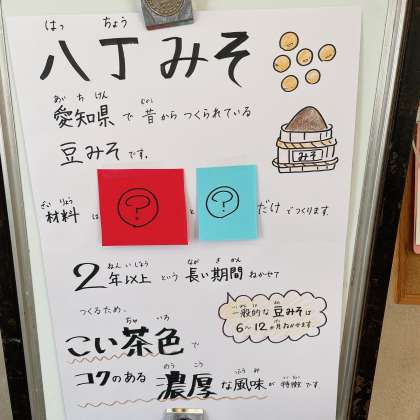 はっ ちょう
八丁みそ
あいちけん むかし
愛知県で昔からつくられている
豆みそです。
みそ
ざいりょう
材料は ? と ? だけでつくります。
ねんいじょう なが きかん
2年以上という長い期間ねかせて
つくるため、
いっぱんてき まめ
一般的な豆みそは
6~12か月ねかせます。
ちゃ いろ
こい茶色で
のうこう ふうみ とくちょう
コクのある濃厚な風味が特徴です